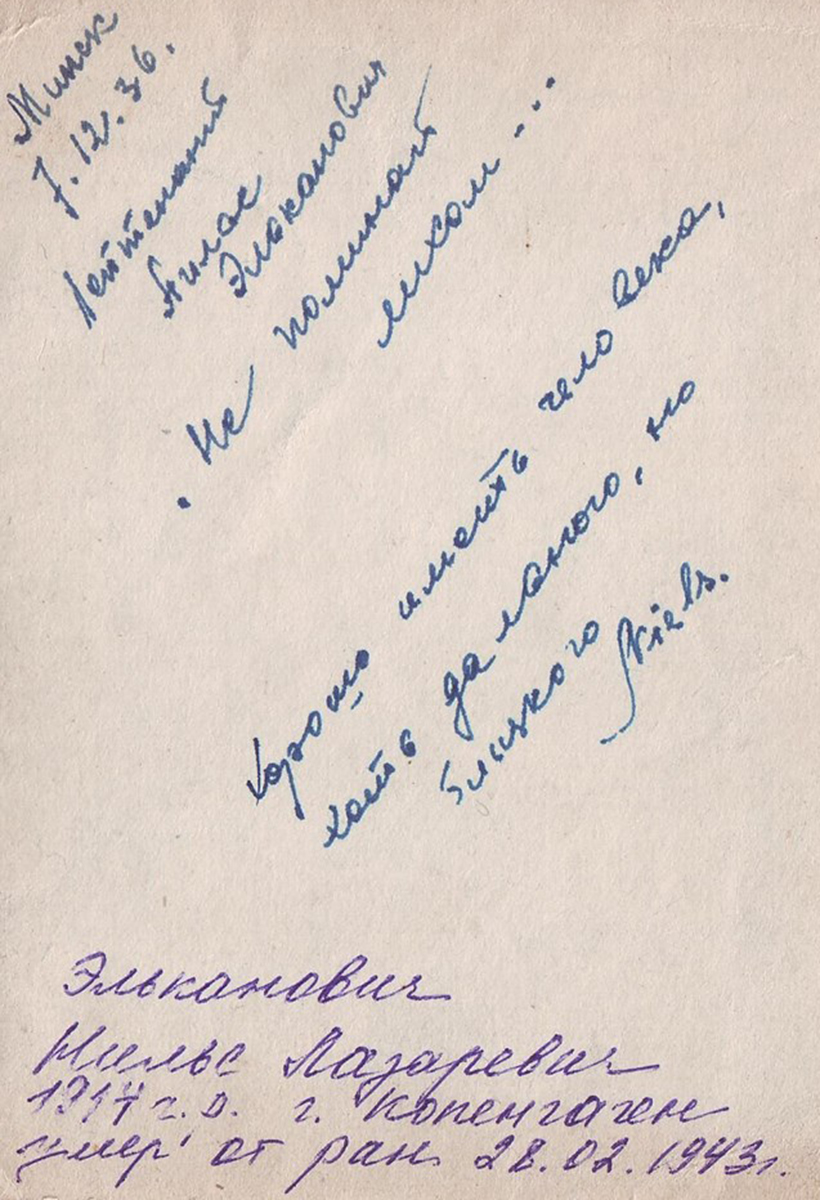 Минск
7.12.36.
Лейтенант
Нильс
Элканович
"Не поминай
лихом...
Хорошо иметь человека,
хоть далёкого, но
близкого Niels.
Эльканович
Нильс Лазаревич
1914 г.р. г. Копенгаген
умер от ран 28.02.1943 г.